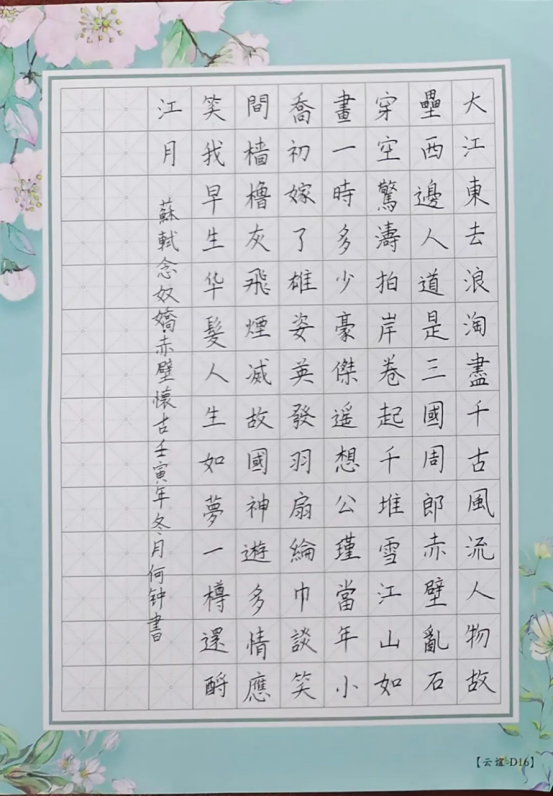 大江東去浪淘盡千古風流人物故
壘西邊人道是三國周郎赤壁亂石
穿空驚濤拍岸卷起千堆雪江山如
畫一時多少豪傑遥想公瑾當年小
喬初嫁了雄姿英發羽扇綸巾談笑
間檣櫓灰飛煙滅故國神遊多情應
笑我早生华髮人生如夢一樽還酹
江月
蘇軾念奴嬌赤壁懷古壬寅年冬月何钟書
【云煊-D16】